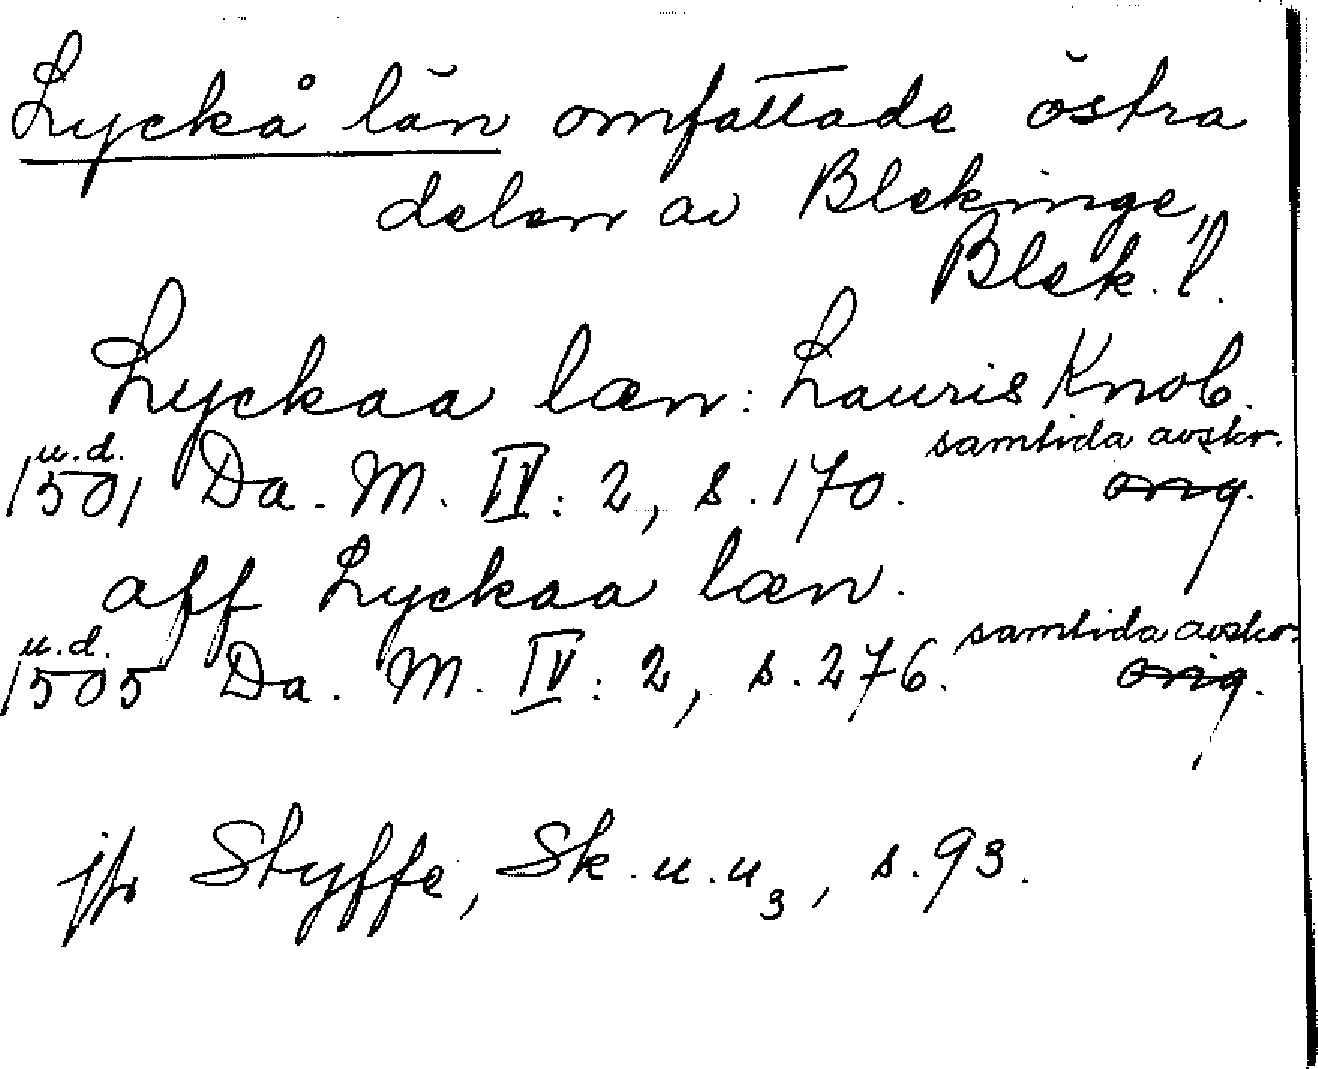 Lyckå län omfattade östra
delen av Blekinge,
Blek. l.
Lyckaa læn: Lauris Knob.
u.d. samtida avskr.
1501 Da. M. IV: 2, s. 170. orig.
aff Lyckaa læn.
u.d. samtida avskr.
1505 Da. M. IV: 2, s. 276. orig.
jfr Styffe, Sk. u. u3, s. 93.